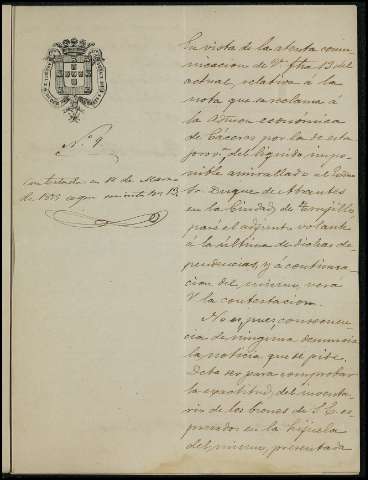 Nº 9.
contestada en 14 de Marzo
de 1885
En vista de la atenta comu-
nicacion de V. fha 13 del
actual, relativa á la
nota que se reclama á
la Admon económica
de Cáceres por la de esta
provª, del liquido impo-
nible amillarado al
Duque de Abrantes
en la Ciudad de Trujillo,
pasé el adjunto volante
á la última de dichas de-
pendencias, y á continua-
cion del mismo, verá
V. la contestacion.
No es, pues, consecuen-
cia de ninguna denuncia
la noticia que se pide.
Debe ser para comprobar
la exactitud, del inventa-
rio de los bienes de S. E. ex-
presados en la hijuela
del mismo, presentada